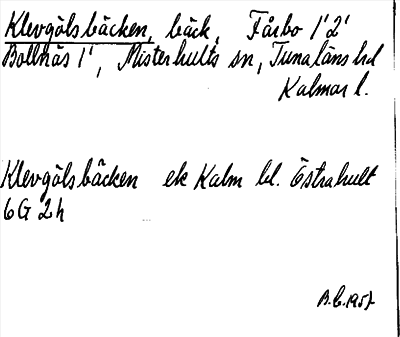 Klevgölsbäcken, bäck, Fårbo 1'2'
Bollnäs 1', Misterhults sn, Tunaläns hd
Kalmar l.
Klevgölsbäcken ek Kalm bl. Östrahult
6G 2h
B.C. 1957